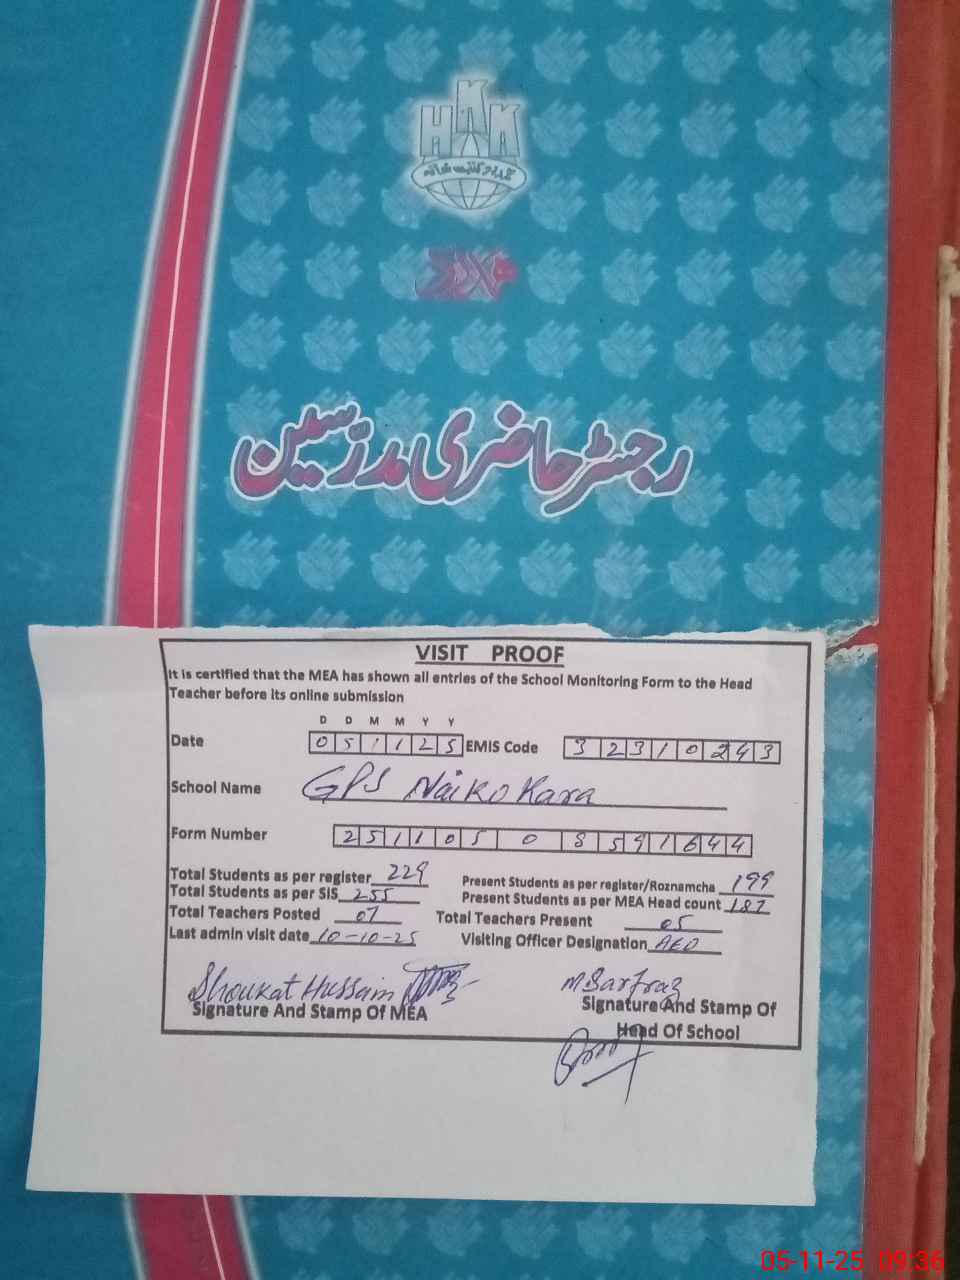 HKK
رجسٹر حاضری مدرّسین
VISIT PROOF
It is certified that the MEA has shown all entries of the School Monitoring Form to the Head
Teacher before its online submission
D D M M Y Y
Date 0 5 1 1 2 5 EMIS Code 3 2 3 1 0 2 4 3
School Name GPS Naiko Kara
Form Number 2 5 1 1 0 5 0 8 5 9 1 6 4 4
Total Students as per register 229 Present Students as per register/Roznamcha 199
Total Students as per SIS 255 Present Students as per MEA Head count 187
Total Teachers Posted 07 Total Teachers Present 05
Last admin visit date 10-10-25 Visiting Officer Designation AEO
Shoukat Hussain M Sarfraz
Signature And Stamp Of MEA Signature And Stamp Of
Head Of School
05-11-25 09:36